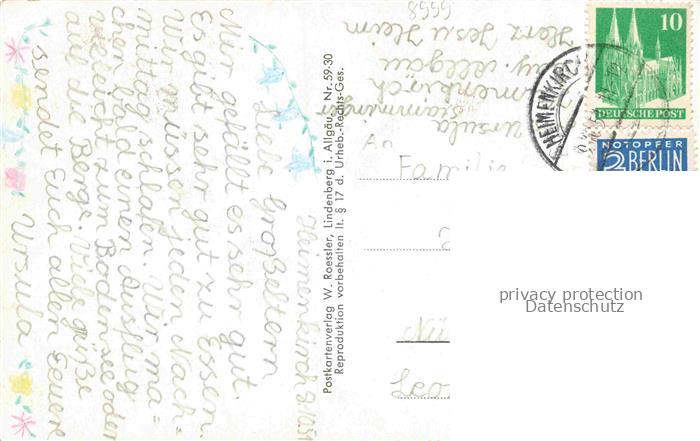 Heimenkirch 8.10.51
Liebe Großeltern
Mir gefällt es sehr gut.
Es gibt sehr gut zu Essen.
Wir müssen jeden Nach=
mittag schlafen. Wir ma=
chen bald einen Ausflug
vielleicht zum Bodensee oder
auf die Berge. Viele grüße
sendet Euch allen Euere
Ursula
Postkartenverlag W. Roessler, Lindenberg i. Allgäu, Nr. 59-30
Reproduktion vorbehalten lt. § 17 d. Urheb.-Rechts-Ges.
Ursula
Heimenkirch
Allgäu
Herz Jesu Heim
8555
An
Familie
Nü
Leo
10
DEUTSCHE POST
HEIMENKIRCH
NOTOPFER
2 BERLIN
privacy protection
Datenschutz